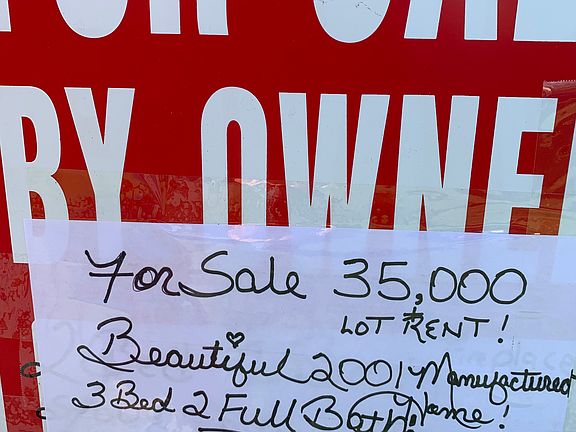 BY OWNE
For Sale 35,000
+
LOT RENT!
Beautiful 2001 Manufactured
3 Bed 2 Full Bath Home!